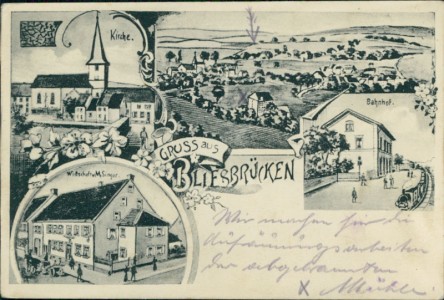 Kirche.
Bahnhof.
GRUSS aus
BLIESBRÜCKEN
Wirtschaft v. M.
Wir machen für die
Aufräumungsarbeiten
der abgebrannten
X Mühle.